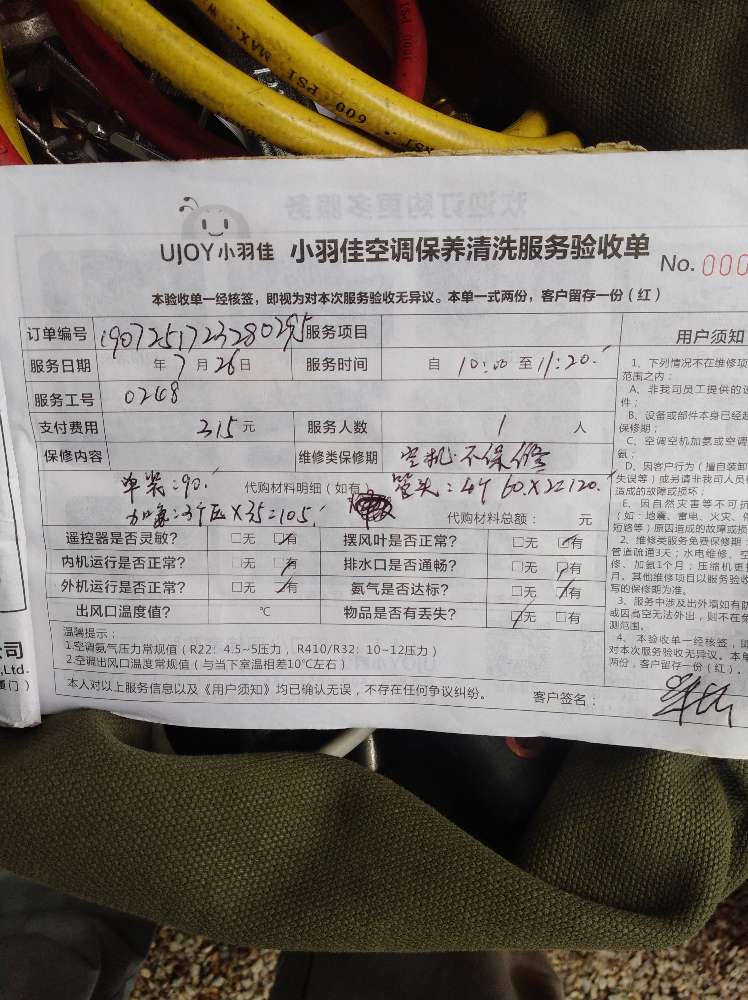 600 PSI MAX. W.
欢迎订购更多服务
UJOY小羽佳 小羽佳空调保养清洗服务验收单
No. 000
本验收单一经核签，即视为对本次服务验收无异议。本单一式两份，客户留存一份（红）
订单编号 1907251723280295 服务项目
用户须知
服务日期 年 7 月 26 日 服务时间 自 10:00 至 11:20.
服务工号 0248
支付费用 315 元 服务人数 1 人
保修内容 维修类保修期 空机不保修
单装:90. 代购材料明细（如有） 管头:4个 60.X2=120.
加氨:3个压X35=105. 代购材料总额： 元
遥控器是否灵敏？ □无 □有 摆风叶是否正常？ □无 □有
内机运行是否正常？ □无 □有 排水口是否通畅？ □无 □有
外机运行是否正常？ □无 □有 氨气是否达标？ □无 □有
出风口温度值？ ℃ 物品是否有丢失？ □无 □有
温馨提示：
1.空调氨气压力常规值（R22：4.5~5压力，R410/R32：10~12压力）
2.空调出风口温度常规值（与当下室温相差10℃左右）
本人对以上服务信息以及《用户须知》均已确认无误，不存在任何争议纠纷。 客户签名：
1、下列情况不在维修项
范围之内：
A、非我司员工提供的设
件；
B、设备或部件本身已经超
保修期；
C、空调空机加氨或空调
氨；
D、因客户行为（擅自装卸
失误等）或另请非我司人员
造成的故障或损坏；
E、因自然灾害等不可抗
（如：地震、雷电、火灾、
短路等）原因造成的故障或损
2、维修类服务免费保修期：
管道疏通3天；水电维修、空
修、加氨1个月；压缩机更换
月。其他维修项目以服务验收
写的保修期为准。
3、服务中涉及出外墙如有防
或因高空无法外出，则不在免
测范围。
4、本验收单一经核签，即
对本次服务验收无异议。本单
两份，客户留存一份（红）。
公司
,Ltd.
厦门）